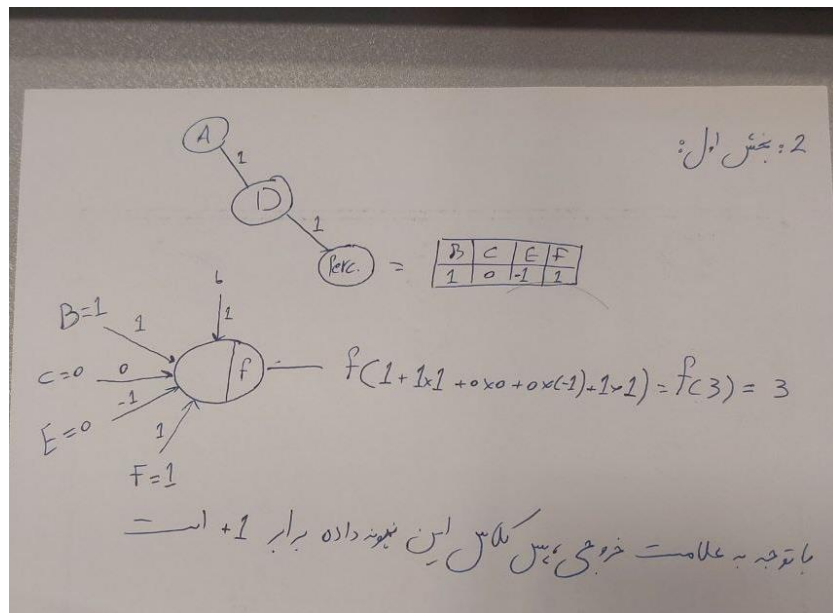 2: بخش اول:
A
1
D
1
Perc. =
B C E F
1 0 -1 1
b
1
B=1 1
C=0 0
E=0 -1
F=1 1
f
f(1+1×1+0×0+0×(-1)+1×1)=f(3)=3
با توجه به علامت خروجی، پس کلاس این نمونه داده برابر +1 است